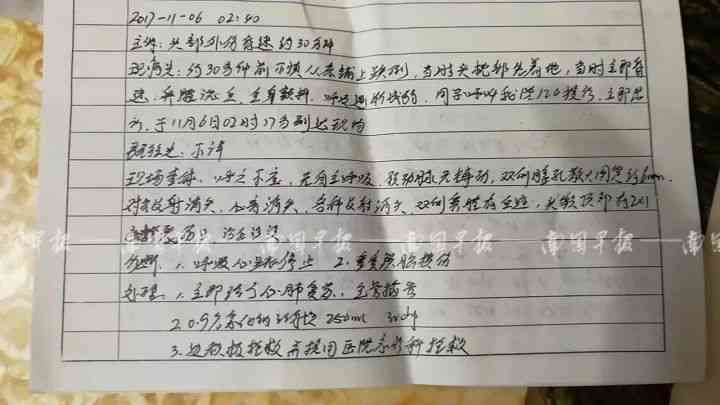 2017-11-06 02:40
主诉:头部外伤昏迷约30分钟
现病史:约30分钟前不慎从床铺上跌倒,当时头枕部先着地,当时立即昏
迷,鼻腔流血,全身颤抖,呼吸,同学呼叫我院120接诊,立即出
于11月6日02时17分到达现场
既往史:不详
现场查体:呼之不应,无自主呼吸,颈动脉无搏动,双侧瞳孔散大固定约6mm,
对光反射消失,心音消失,各种反射消失,双侧鼻腔有血迹,头颅顶部有2x1
南国早报 南国早报 南国早报
诊断:1.呼吸心跳停止 2.重度颅脑损伤
处理:1.立即给予心肺复苏,
2.0.9%氯化钠注射液 250ml ivdg
3.边积极抢救并接回医院急诊科抢救